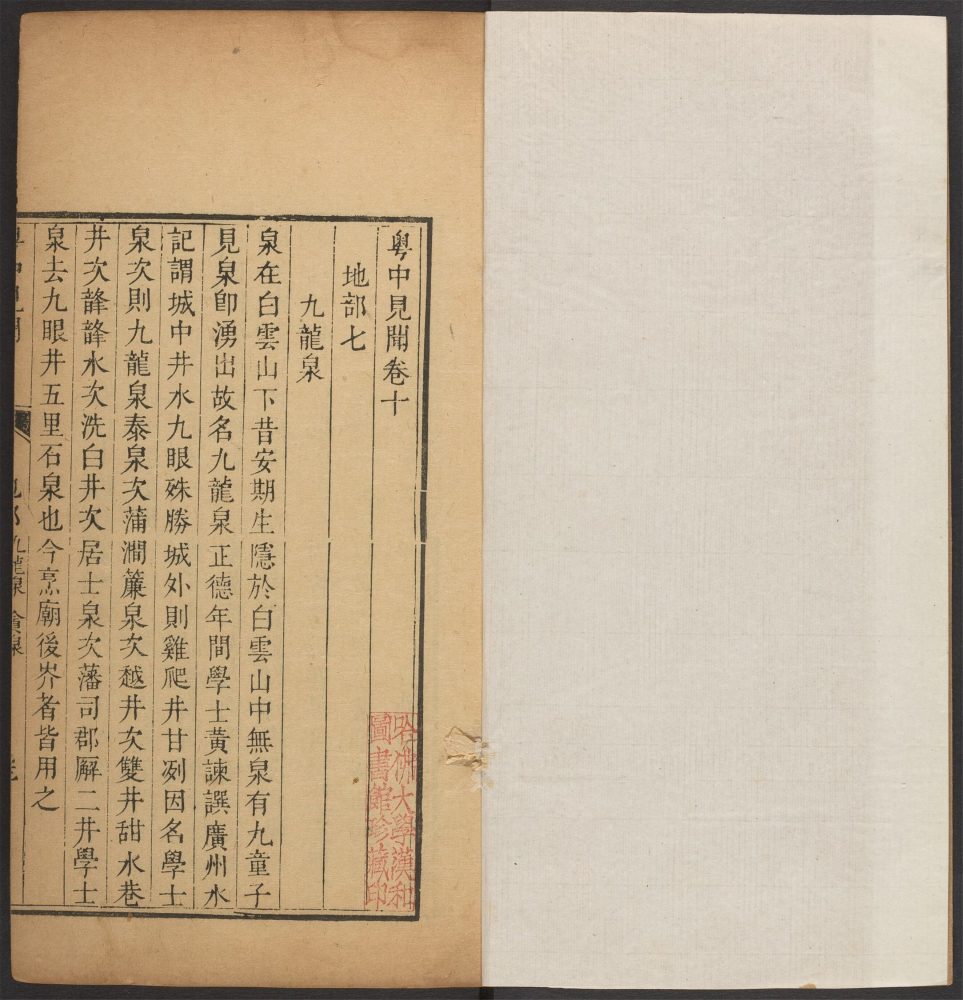 粤中見聞卷十
地部七
九龍泉
泉在白雲山下昔安期生隱於白雲山中無泉有九童子
見泉即湧出故名九龍泉正德年間學士黃諫譔廣州水
記謂城中井水九眼殊勝城外則雞爬井甘冽因名學士
泉次則九龍泉泰泉次蒲澗簾泉次越井次雙井甜水巷
井次韸韸水次洗白井次居士泉次藩司郡廨二井學士
泉去九眼井五里石泉也今烹廟後岕者皆用之
九龍泉 貪泉
哈佛大學漢和
圖書館珍藏印